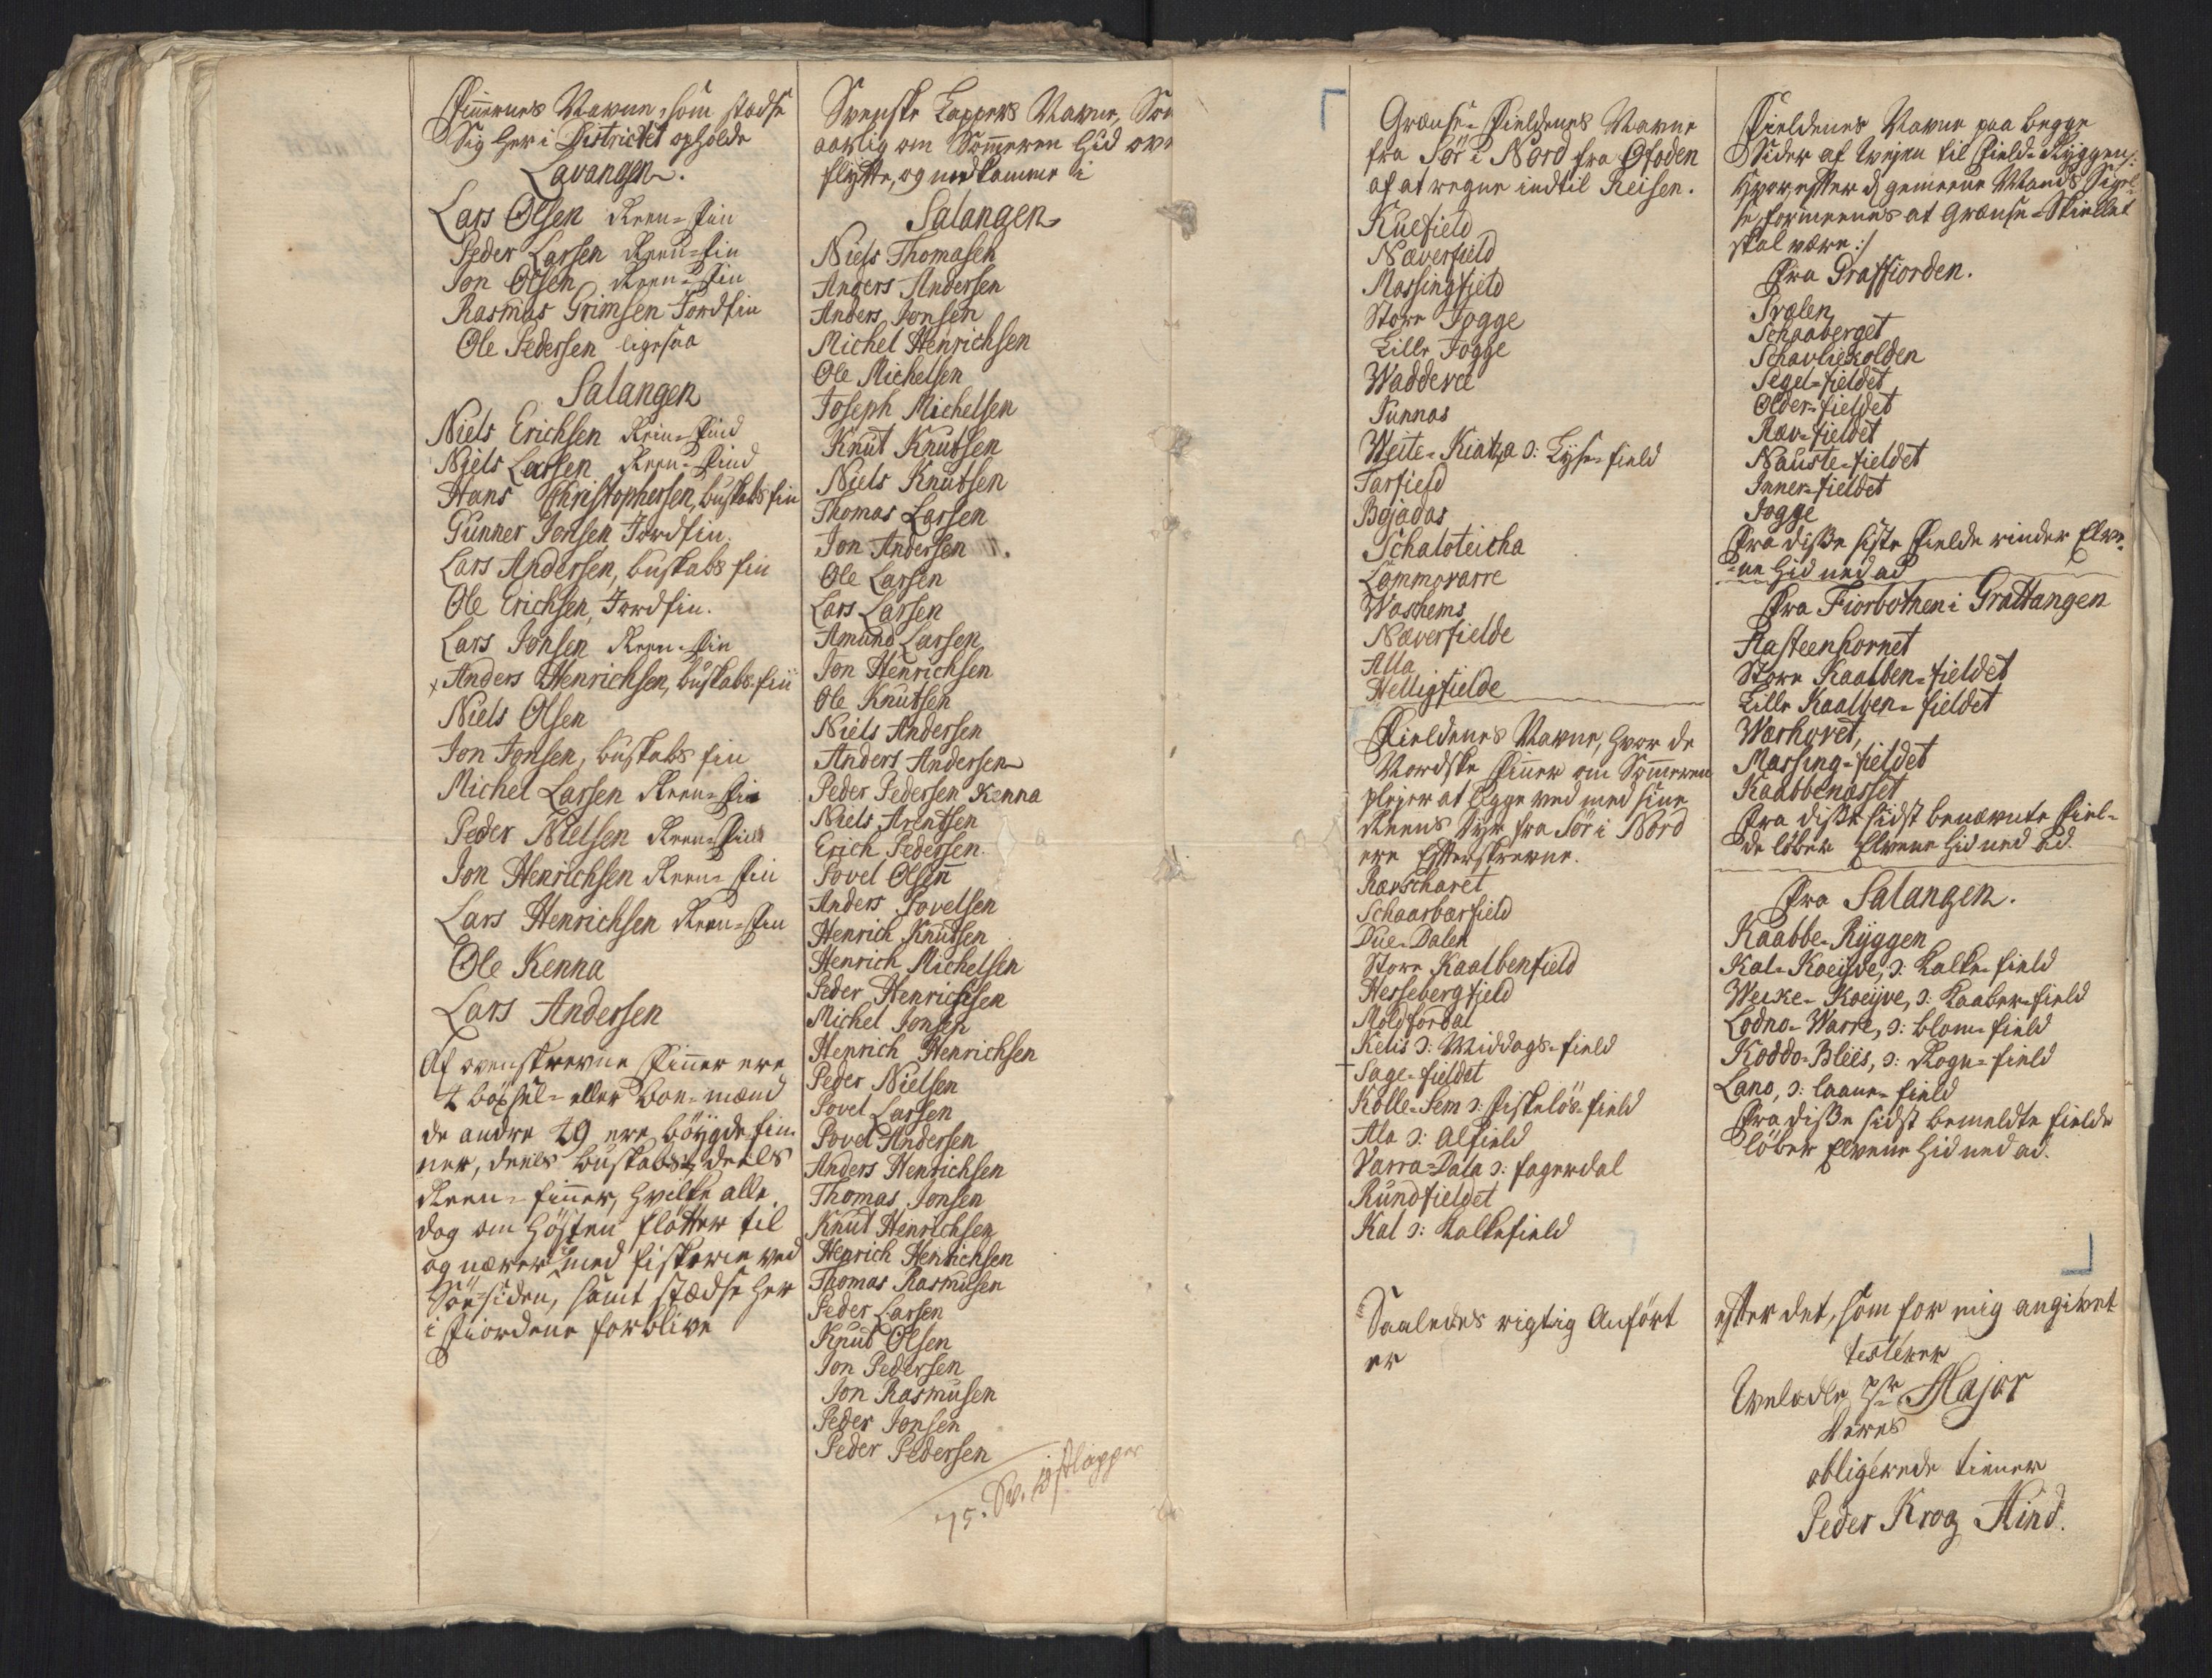 Finnernes Navne, som stedse
Sig her i Districtet opholde
Lavangen.
Lars Olsen Reen-Fin
Peder Larsen Reen-Fin
Jon Olsen Reen-Fin
Rasmus Grimsen Jordfin
Ole Pedersen ligesaa
Salangen
Niels Erichsen Rein-Find
Niels Larsen Reen-Find
Hans Christophersen, buskabs fin
Gunner Jonsen Jordfin.
Lars Andersen, buskabs fin
Ole Erichsen, Jordfin.
Lars Jonsen Reen-Fin
Anders Henrichsen, buskabs-fin
Niels Olsen
Jon Jonsen, buskabs fin
Michel Larsen Reen-Fin
Peder Nielsen Reen-Fin
Jon Henrichsen Reen-Fin
Lars Henrichsen Reen-Fin
Ole Kenna
Lars Andersen
Af ovenskrevne Finner ere
böxsel- eller Boe-mænd
de andre 19 ere böygde-fin-
ner, deels buskabs, deels
Reen-finner, hvilke alle
dog om Hösten flötter til
og nærer med fiskerie ved
Söe-siden, samt stædse her
i Fiordene forblive
Svenske Lappers Navne, Som
aarlig om Sommeren hid over
flÿtte, og nedkomme i
Salangen
Niels Thomasen
Anders Andersen
Anders Jonsen
Michel Henrichsen
Ole Michelsen
Joseph Michelsen
Knut Knutsen
Niels Knutsen
Thomas Larsen
Jon Andersen
Ole Larsen
Lars Larsen
Amund Larsen
Jon Henrichsen
Ole Knutsen
Niels Andersen
Anders Andersen
Peder Pedersen Kenna
Niels Arentsen
Erich Pedersen.
Povel Olsen
Anders Povelsen
Henrich Knutsen
Henrich Michelsen
Peder Henrichsen
Michel Jonsen
Henrich Henrichsen
Peder Nielsen
Povel Larsen
Povel Andersen
Anders Henrichsen
Thomas Jonsen
Knut Henrichsen
Henrich Henrichsen
Thomas Rasmusen
Peder Larsen
Knud Olsen
Jon Pedersen
Jon Rasmusen
Peder Jonsen
Peder Pedersen
Grændse-Fieldenes Navne
fra Sör i Nord fra Ofoden
af at regne indtil Reisen.
Kuefield
Næverfield
Massingfield
Store Jogge
Lille Jogge
Waddevei
Tunnas
Weite-Kiatza ɔ: Lyse-field
Tarfield
Bojadas
Schaloteicha
Lommovarre
Washems
Næverfielde
Alla
Helligfielde
Fieldenes Navne, hvor de
Nordske Finner om Sommeren
plejer at ligge ved med sine
Reens Dÿr fra Sör i Nord
ere Efterskrevne.
Ravscharet
Schaarbarfield
Due-Dalen
Store Kaalbenfield
Hessebergfield
Moldfordal
Kelis ɔ: Middags-field
Sage-fieldet
Kolle-Sem ɔ: fiskelös-field
Ala ɔ: Alfield
Varra-Dala ɔ: fagerdal
Rundfieldet
Kal ɔ: Kalkefield
Saaledes rigtig Anfört
er
Fieldenes Navne paa begge
Sider af Wejen til Field-Ryggen/:
hvorefter gemeene Mands Sigel-
se formeenes at Grændse-Skiellet
skal være:/
Fra Grafffiorden.
Prælen
Schaaberget
Schavliekolden
Segel-fieldet
Older-fieldet
Ræv-fieldet
Nauste-fieldet
Inner-fieldet
Jogge
Fra diße siste Fielde rinder Elve-
ne hid ned ad
Fra Fiorbotnen i Grattangen
Hasteenhornet
Store Kaalben-fieldet
Lille Kaalben-fieldet
Warhovet,
Massing-fieldet
Kaabbenæsset
Fra diße sidst benævnte Fiel-
de löber Elvene hid ned ad.
Fra Salangen.
Kaabbe-Ryggen
Kal-Koeiwe, ɔ: Kalke-field
Weike-Koeijve, ɔ: Kaaber-field
Lodno-Warre, ɔ: blom-field
Koddo-Bleis, ɔ: Rogn-field
Lano, ɔ: laane-field
Fra diße sidst bemeldte fielde
löber Elvene hid ned ad.
efter det, som for mig angivet
testerer
Welædle Hr Major
Deres
obligerede tiener
Peder Krog Hind.